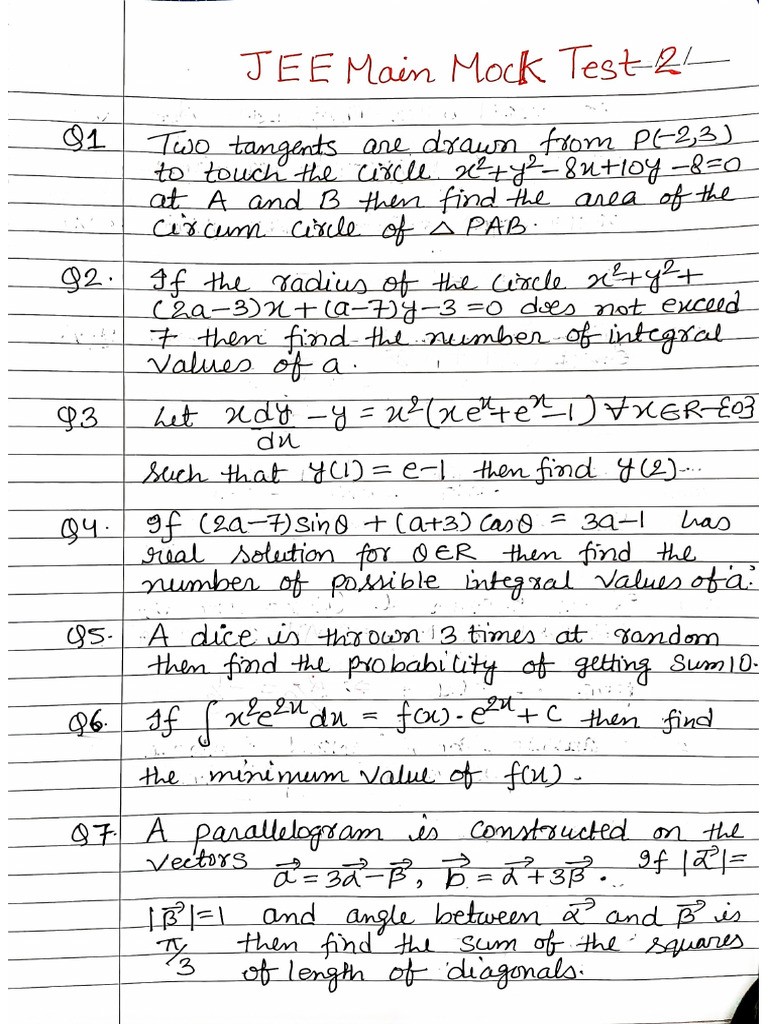 JEE Main Mock Test-2
Q1 Two tangents are drawn from P(-2,3)
to touch the circle x²+y²-8x+10y-8=0
at A and B then find the area of the
circum circle of △ PAB.
Q2. If the radius of the circle x²+y²+
(2a-3)x+(a-7)y-3=0 does not exceed
7 then find the number of integral
values of a.
Q3 Let x dy/dx - y = x²(xeˣ+eˣ-1) ∀ x∈R-{0}
such that y(1) = e-1 then find y(2)..
Q4. If (2a-7)sinθ + (a+3)cosθ = 3a-1 has
real solution for θ∈R then find the
number of possible integral values of 'a'.
Q5. A dice is thrown 3 times at random
then find the probability of getting sum 10.
Q6. If ∫x²e²ˣdx = f(x).e²ˣ+C then find
the minimum value of f(x).
Q7. A parallelogram is constructed on the
vectors a⃗=3α⃗-β⃗, b⃗=α⃗+3β⃗. If |α⃗|=
|β⃗|=1 and angle between α⃗ and β⃗ is
π/3 then find the sum of the squares
of length of diagonals.